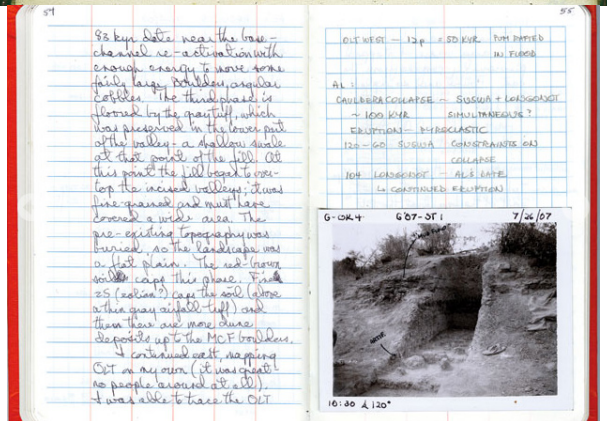 54
83 kyr date near the base -
channel re-activation with
enough energy to move some
fairly large boulders, angular
cobbles. The third phase is
floored by the gray tuff, which
was preserved in the lower part
of the valley - a shallow swale
at that point of the fill. At
this point the fill began to over-
top the incised valleys; it was
fine-grained and must have
covered a wide area. The
pre-existing topography was
buried, so the landscape was
a flat plain. The red-brown
soil caps this phase. Fine
ZS (eolian?) caps the soil (above
a thin gray airfall tuff) and
then there are more dune
deposits up to the MCF boulders.
I continued east, mapping
OLT on my own (it was great -
no people around at all).
I was able to trace the OLT
55
OLT WEST - 12p = 50 KYR
IN FLOOD
AL:
CAULDERA COLLAPSE - SUSWA + LONGONOT
~ 100 KYR SIMULTANEOUS?
ERUPTION - PYROCLASTIC
120-60 SUSWA CONSTRAINTS ON
COLLAPSE
104 LONGONOT - AL'S DATE
↳ CONTINUED ERUPTION
G'07-ST1 7/26/07
10:30 120°